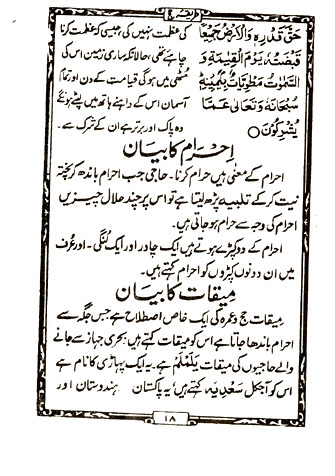 حَقَّ قَدْرِهٖ وَالْاَرْضُ جَمِيْعًا
قَبْضَتُهٗ يَوْمَ الْقِيٰمَةِ وَ
السَّمٰوٰتُ مَطْوِيّٰتٌ بِيَمِيْنِهٖ
سُبْحَانَهٗ وَتَعَالٰى عَمَّا
يُشْرِكُوْنَ ○
کی عظمت نہیں کی، جیسی کہ عظمت کرنا
چاہئے تھی، حالانکہ ساری زمین اس کی
مٹھی میں ہوگی قیامت کے دن اور تمام
آسمان اس کے داہنے ہاتھ میں لپٹے ہونگے
وہ پاک اور برتر ہے ان کے شرک سے ۔
اِحْرام کا بیان
احرام کے معنی ہیں حرام کرنا۔ حاجی جب احرام باندھ کر پختہ
نیت کر کے تلبیہ پڑھ لیتا ہے تو اس پر چند حلال چیزیں
احرام کی وجہ سے حرام ہو جاتی ہیں۔
احرام کے دو کپڑے ہوتے ہیں ایک چادر اور ایک لنگی۔ اور عُرف
میں ان دونوں کپڑوں کو احرام کہتے ہیں۔
مِیقات کا بیان
مِیقات حج و عمرہ کی ایک خاص اصطلاح ہے جس جگہ سے
احرام باندھا جاتا ہے اس کو میقات کہتے ہیں؛ بحری جہاز سے جانے
والے حاجیوں کی میقات یَلَمْلَمْ ہے۔ یہ ایک پہاڑی کا نام ہے
اس کو آجکل سَعدِیَہ کہتے ہیں؛ یہ پاکستان ہندوستان اور
۱۸